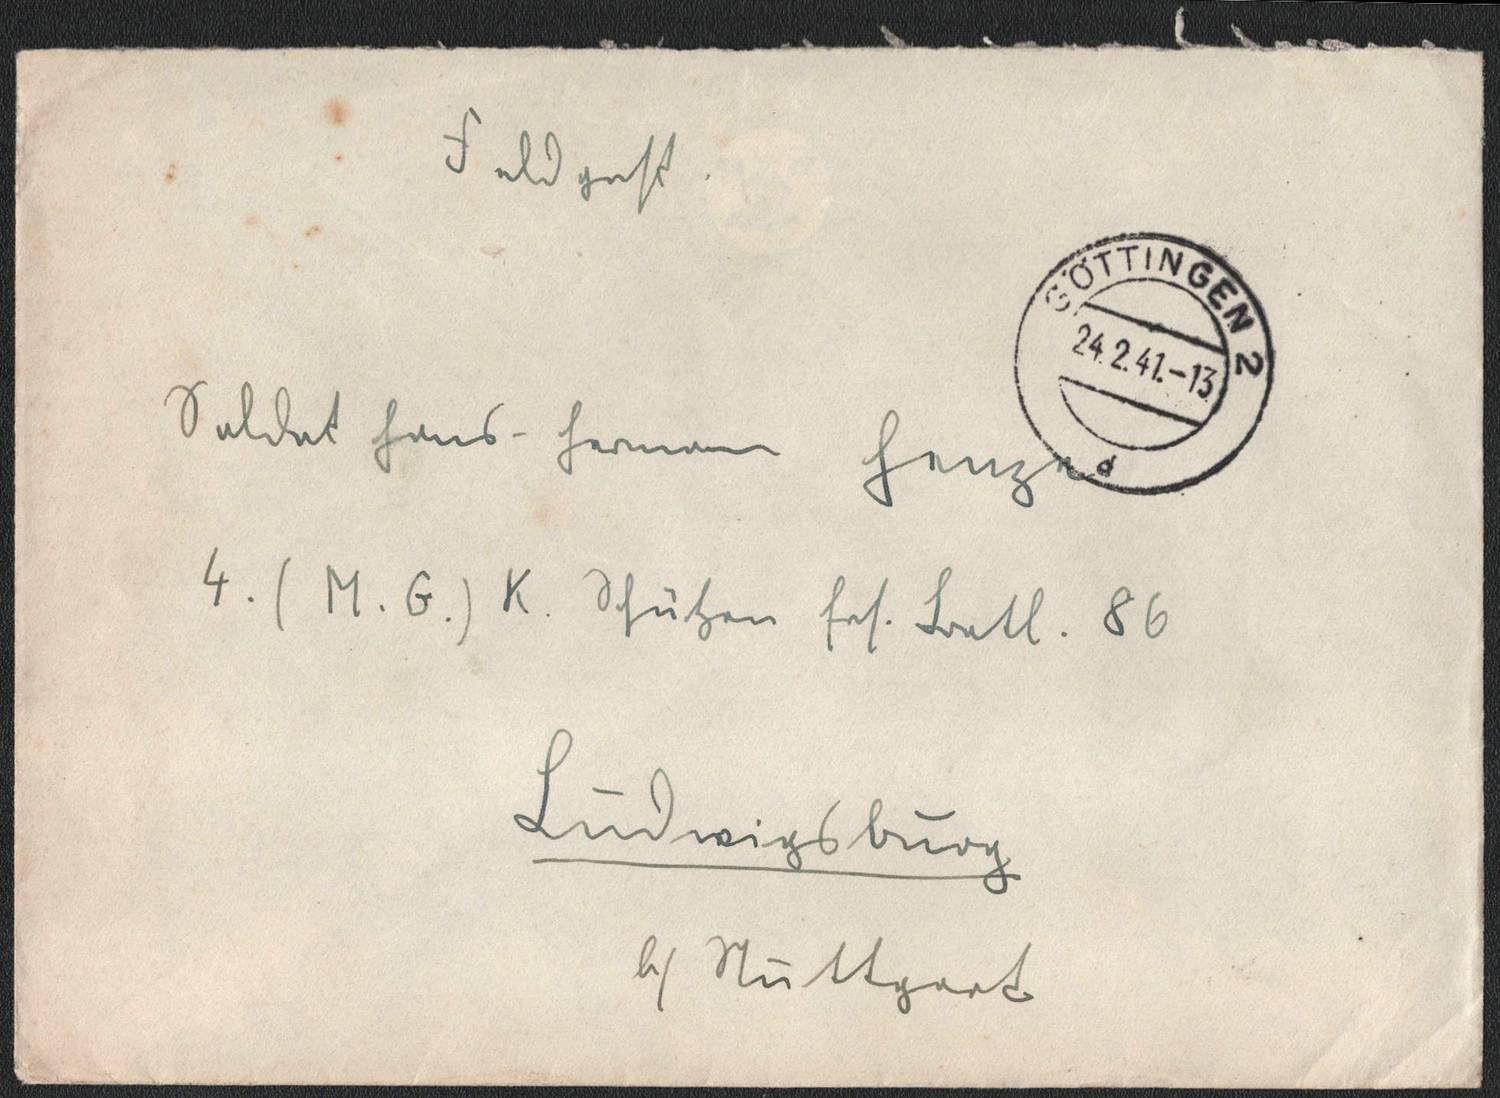 Feldpost.
GÖTTINGEN 2
24.2.41.-13
d
Soldat Hans-Hermann Henze
4. (M.G.) K. Schützen Ers. Batl. 86
Ludwigsburg
b/ Stuttgart